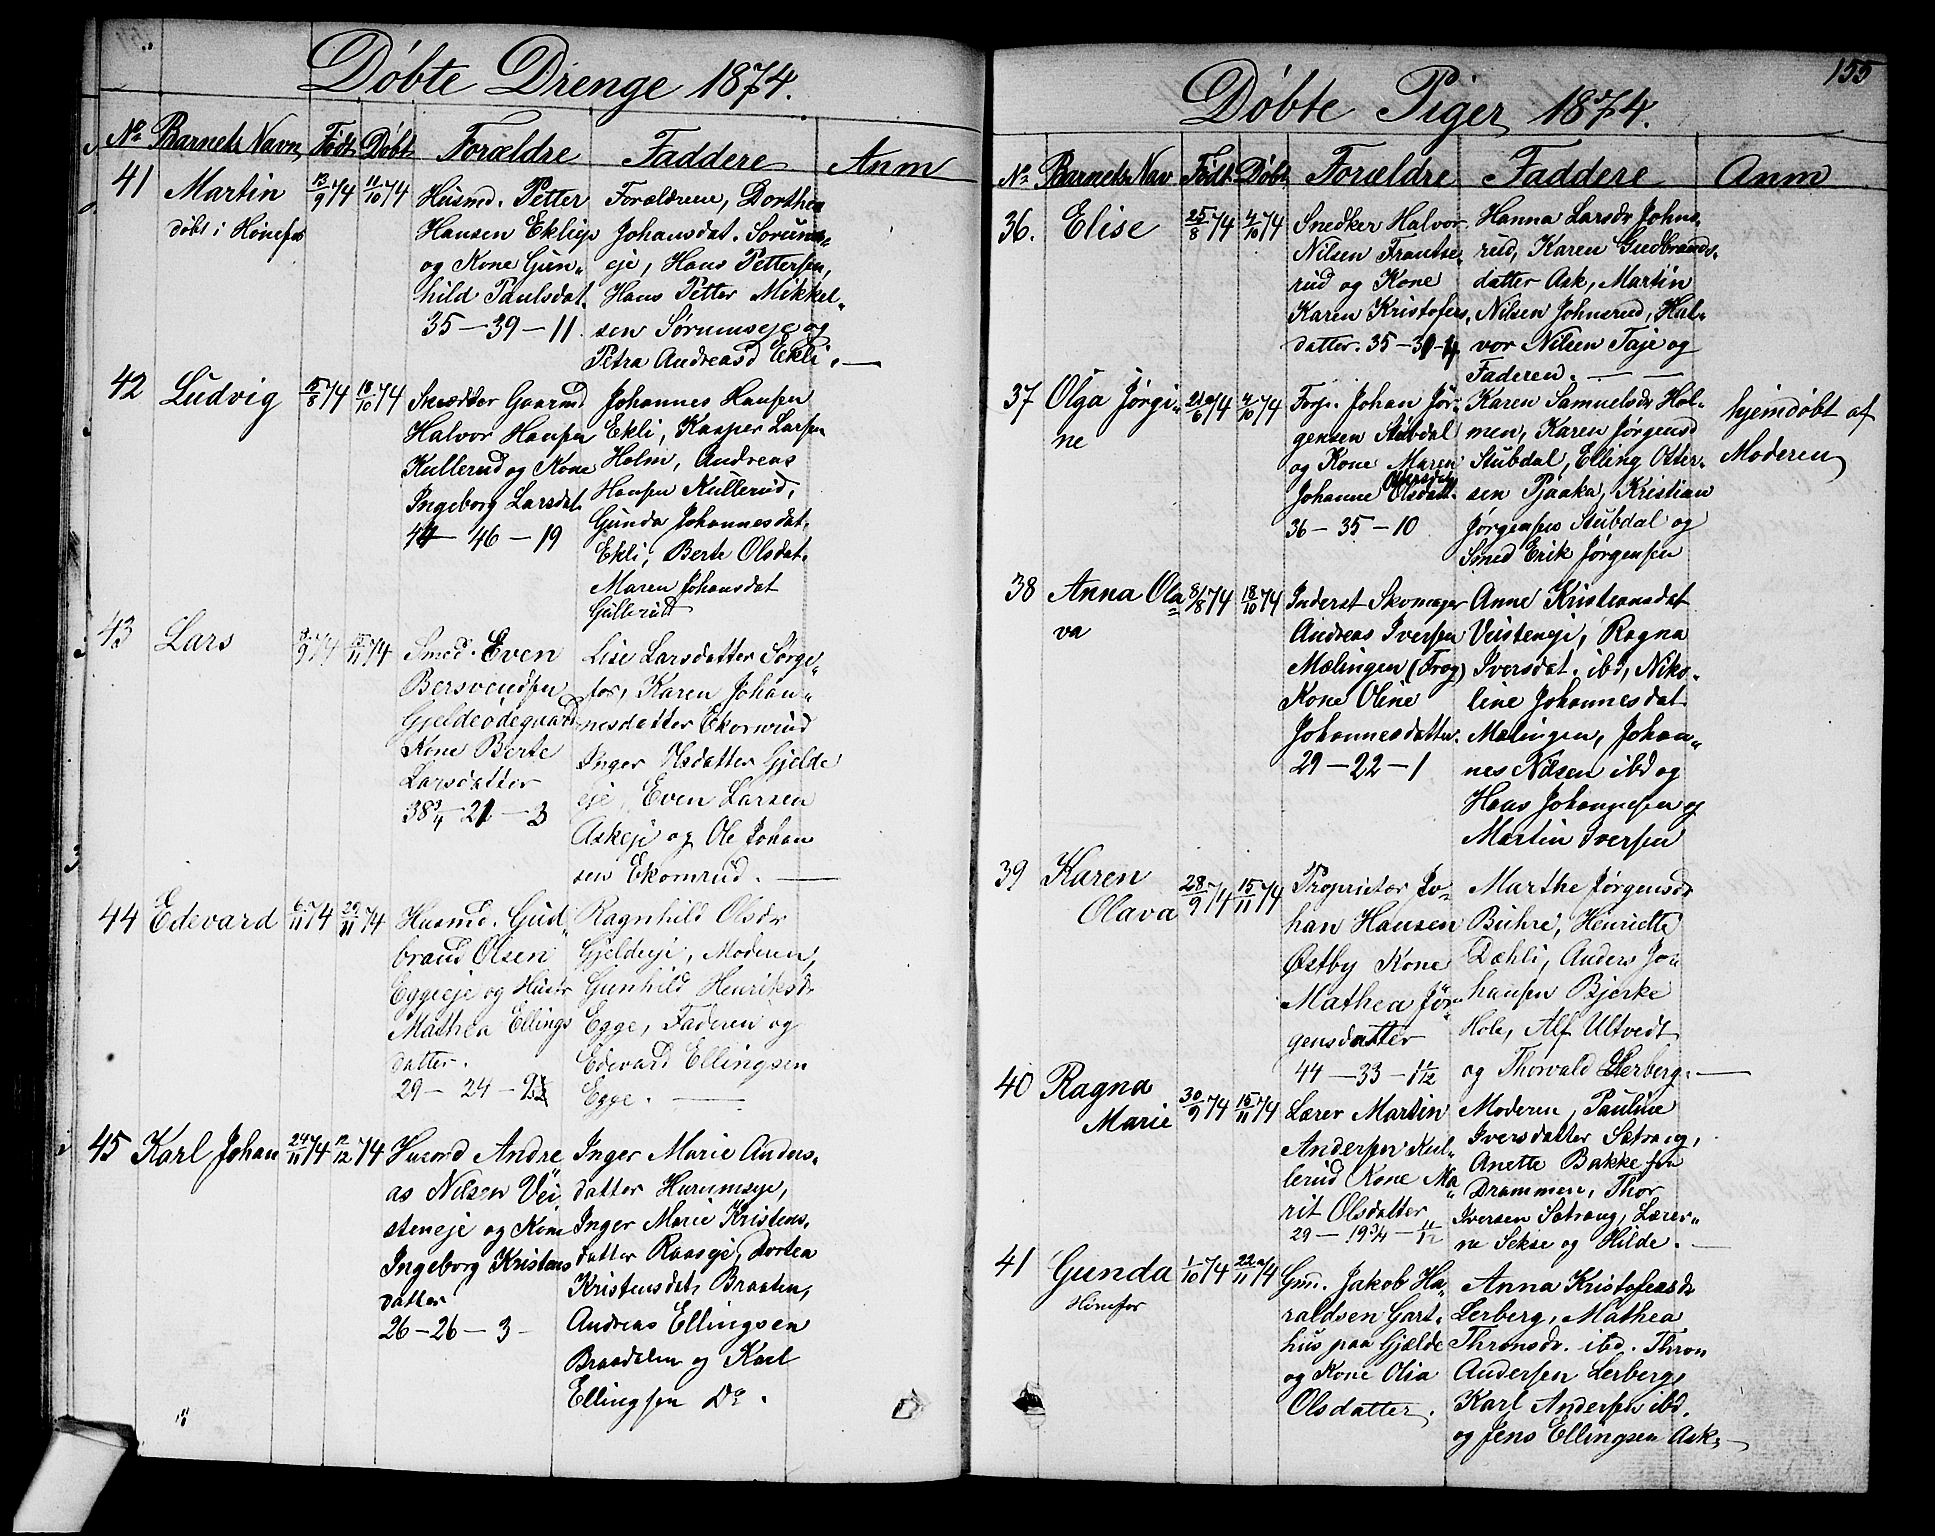 Døbte Drenge 1874.
No Barnets Navn Født Døbt Forældre Faddere Anm
41 Martin 13/9 74 11/10 74
døbt i Hönefos
Husmd. Petter
Hansen Eklieje
og Kone Gun-
hild Paulsdat.
35-39-11.
Forældrene, Dorthea
Johansdat. Sørums-
eje, Hans Pettersen,
Hans Petter Mikkel-
sen Sørumseje og
Petra Andreasd Ekli. —
42 Ludvig 15/8 74 18/10 74
Skrædder Gaarmd
Halvor Hansen
Kullerud og Kone
Ingeborg Larsdat.
44-46-19
Johannes Hansen
Ekli, Kasper Larsen
Holm, Andreas
Hansen Kullerud,
Gunda Johannesdat.
Ekli, Berte Olsdat.
Maren Johansdat
Gullerud
43 Lars /9 74 15/11 74
Smed. Even
Bersvendsen
Gjeldeødegaard
Kone Berte
Larsdatter
38 3/4 - 21 - 3
Lise Larsdatter Sørge-
for, Karen Johan-
nesdatter Ekornrud
Inger Ilsdatter Gjelde
eje, Even Larsen
Askeje og Ole Johan
sen Ekornrud. —
44 Edevard 6/11 74 29/11 74
Husmd. Gud-
brand Olsen
Eggeeje og Hustr
Mathea Ellings
datter.
29 - 24 -
Ragnhild Olsdr
Gjeldeeje, Moderen,
Gunhild Henriksdr
Egge, Faderen og
Edevard Ellingsen
Egge. —
45 Karl Johan 24/11 74 12/12 74
Husmd Andre
as Nilsen Vei
steneje og Kone
Ingeborg Kristens
datter
26-26-3-
Inger Marie Anders-
datter Hurumseje,
Inger Marie Kristens-
datter Raaseje, Dortea
Kristensdat. Braaten,
Andreas Ellingsen
Braadalen og Karl
Ellingsen Do.
155
Døbte Piger 1874.
No Barnets Nav Født Døbt Forældre Faddere Anm
36. Elise 25/8 74 4/10 74
Snedker Halvor
Nilsen Frantse-
rud og Kone
Karen Kristofers-
datter. 35-31-4
Hanna Larsdr Johns-
rud, Karen Gudbrands-
datter Ask, Martin
Nilsen Johnsrud, Hal-
vor Nilsen Taje og
Faderen. — —
37 Olga Jørgi-
ne
/6 74 4/10 74
Forp. Johan Jør-
gensen Stubdal
og Kone Maren
Johanne Olsdatt.
36-35-10
Karen Samuelsdr Hol-
men, Karen Jørgensd
Stubdal, Elling Oster-
sen Pjaaka, Kristian
Jørgensen Stubdal og
Smed Erik Jørgensen
hjemdøbt af
Moderen
38 Anna Ola
va
8/8 74 18/10 74
Inderst Skomager
Andreas Iversen
Mælingen (Frog)
Kone Oline
Johannesdatter.
29-22-1
Anne Kristiansdat
Veisteneje, Ragna
Iversdat. ibd, Niko-
line Johannesdat
Mælingen, Johan-
nes Nilsen ibd og
Hans Johannesen og
Martin Iversen
39 Karen
Olava
28/9 74 15/11 74
Proprietær Jo-
han Hansen
Østby Kone
Mathea Jør-
gensdatter
44-33-1 1/12
Marthe Jørgensdr
Buhre, Henriette
Dæhli, Anders Jo
hansen Bjerke
Hole, Alf Ultvedt
og Thorvald Lerberg. —
40 Ragna
Marie
30/9 74 15/11 74
Lærer Martin
Andersen Kul-
lerud Kone Ma
rit Olsdatter
29-19 3/4 - 11/12
Moderen, Pauline
Iversdatter Sætrang,
Anette Bakke fra
Drammen, Thor
Iversen Sætrang, Lærer-
ne Sekse og Hilde. —
41 Gunda 1/10 74 22/11 74
Hönefos
Gm. Jakob Ha-
raldsen Gart-
hus paa Gjælde
og Kone Olia
Olsdatter.
Anna Kristofersdr
Lerberg, Mathea
Thronsdr. ibd. Thron
Andersen Lerberg,
Karl Andersen ibd.
og Jens Ellingsen Ask. —